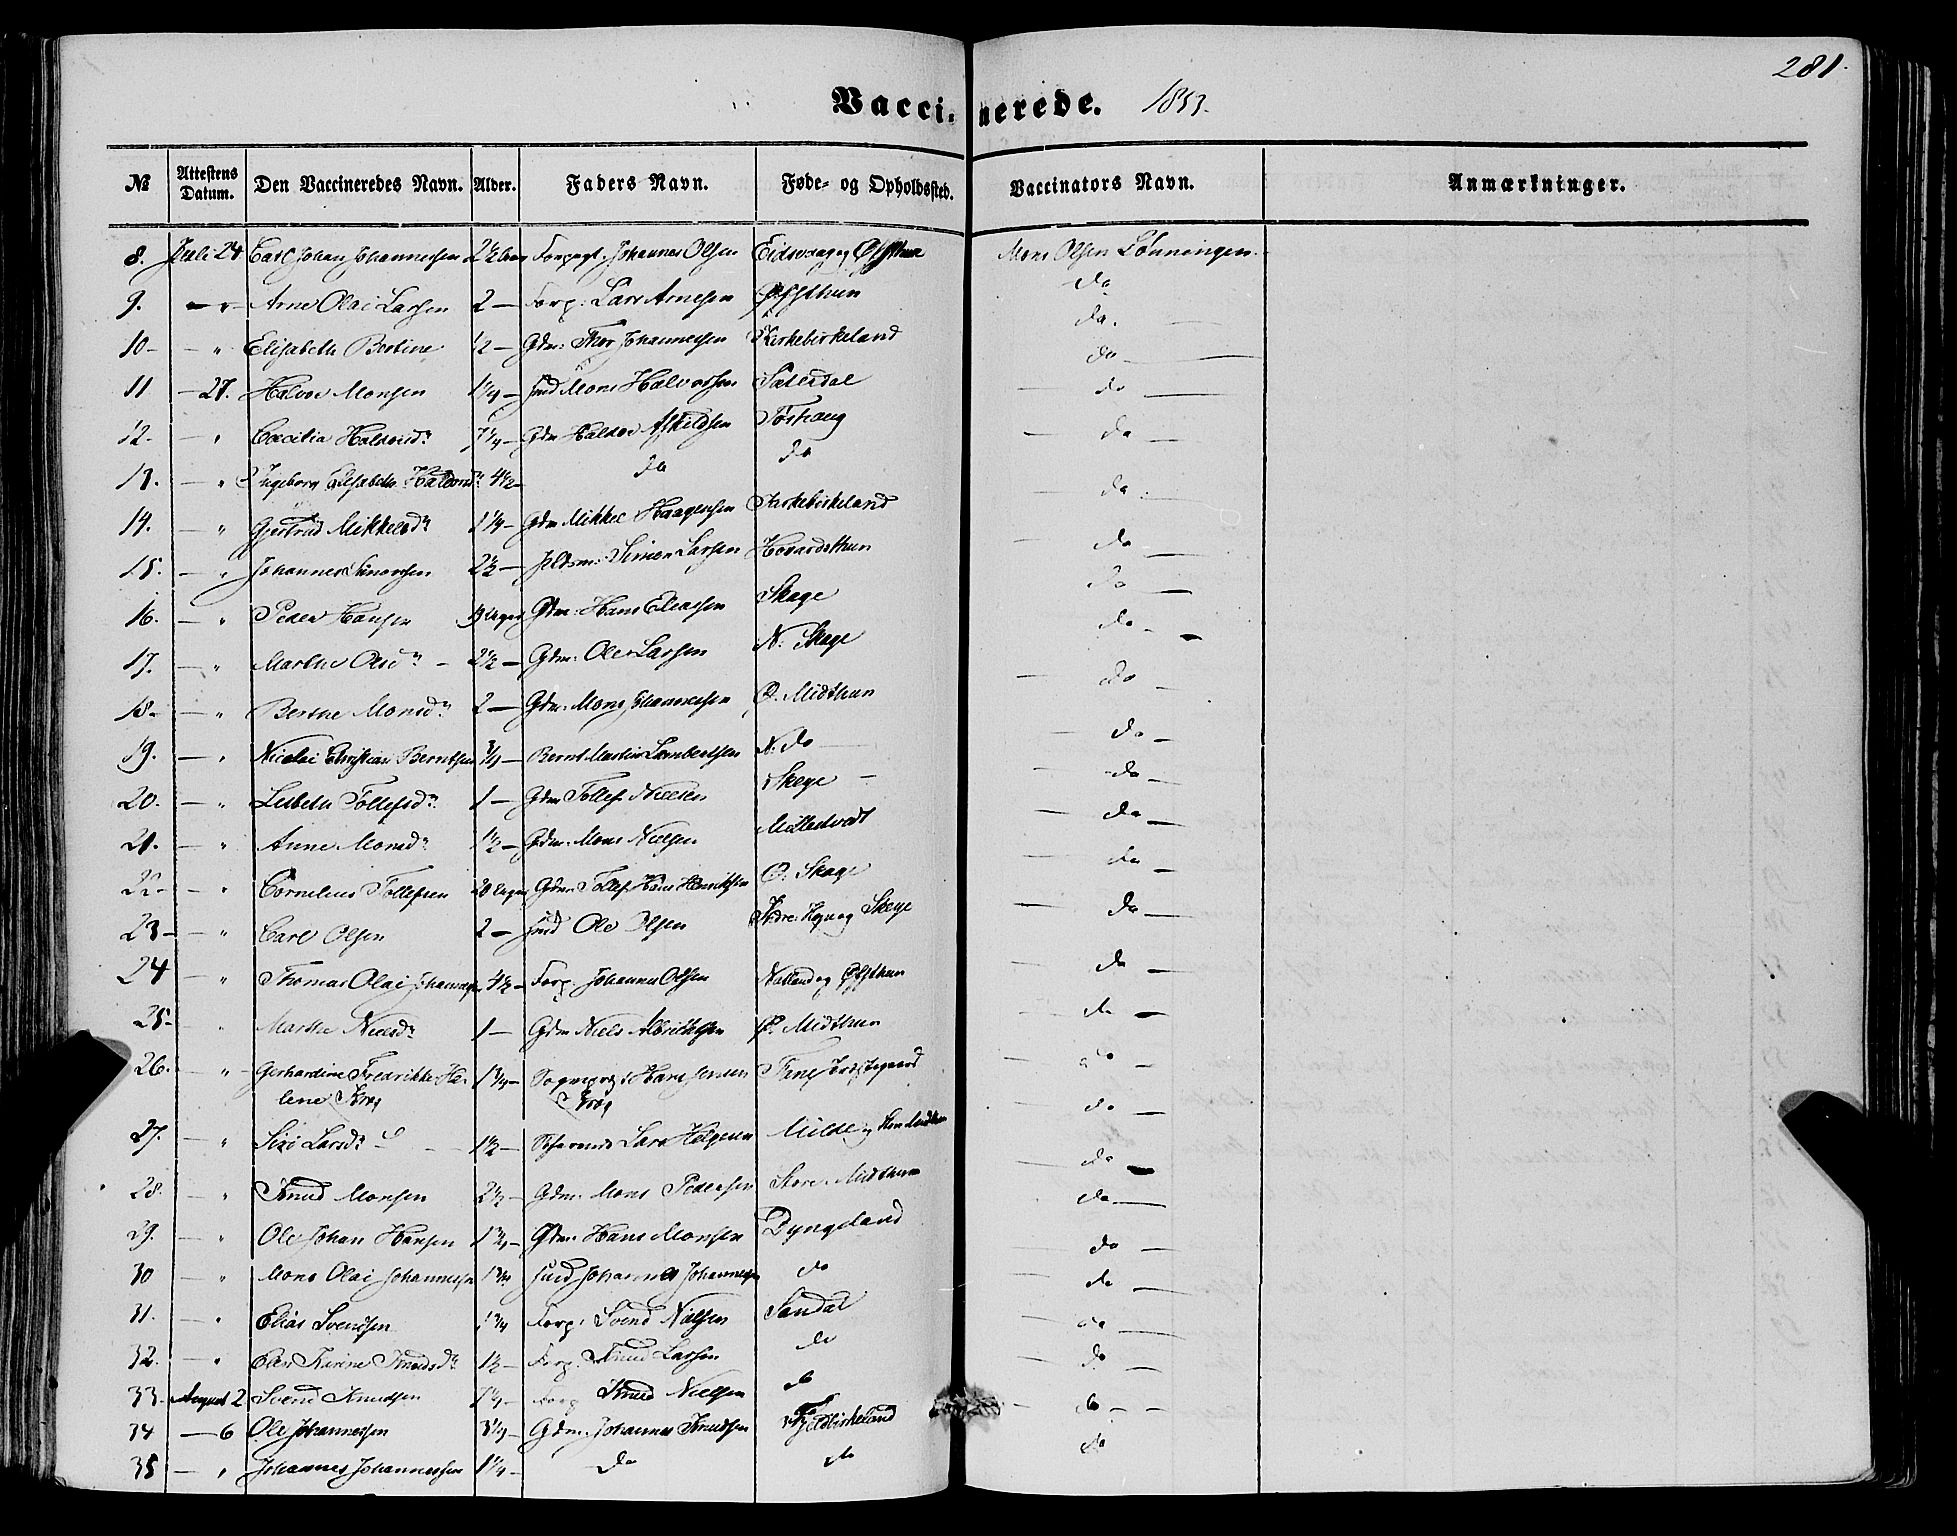 281.
Vaccinerede. 1853.
№ Attestens Datum. Den Vaccineredes Navn. Alder. Faders Navn. Føde- og Opholdssted. Vaccinators Navn. Anmærkninger.
8. Juli 24 Carl Johan Johannessen 2½ Johannes Olsen Eidsvaag Mons Olsen Lønningen.
9. — " Arne Olai Larsen 2 — Forp: Lars Arnesen Øfsthun do
10 — — " Elisabeth Bertine ½ — Gdm: Thor Johannessen Kirkebirkeland do. —
11 — 27. Halvor Monsen 1¼ — Mons Halvorsen Sætersdal do —
12. — " Cæcilia Haldorsdr 7¼ — Gdm Haldor Askildsen do —
13. — " Ingeborg Elisabeth Haldorsdr 4½ — do do do —
14. — " Gjertrud Mikkelsdr 1¼ — Gdm Mikkel Haagensen Kirkebirkeland — do —
15. — " Johannes Simonsen 2½ — Simon Larsen Hovardsthun — do —
16. — " Peder Hansen Gdm: Hans Eliassen Skage do —
17. — " Marthe Olsdr — 2½ — Gdm: Ole Larsen N: Skage do —
18 — — " Berthe Monsdr 2 — Gdm: Mons Johannessen Ø. Midthun — do —
19. — " Nicolai Christian Berntsen ¾ — Bernt Martin Lambertsen N: do — do —
20. — " Lisbeth Tollefsdr 1 — Gdm Tollef Nielsen Skage — do —
21. — " Anne Monsdr 1½ — Gdm: Mons Nielsen — do —
22 — — " Cornelius Tollefsen 20 Uger Gdm Tollef Hans Henriksen Ø. Skage — do —
23 — — " Carl Olsen 2 — Ole Olsen Skage — do —
24 — " Thomas Olai Johannessen 4½ — Forp. Johannes Olsen Øfsthun do —
25 — " Marthe Nielsdr 1 — Gdm Niels Albrithsen Ø. Midthun — do —
26. — " — Gerhardine Fredrikke He- 1¾ — Hans Jensen Fane — do —
lene Krog Krog
27. — " Siri Larsdr 1½ — Lars Helgesen Milde — do —
28. — " Knud Monsen 2½ — Gdm: Mons Pedersen Store Midthun do —
29. — " Ole Johan Hansen — Gdm: Hans Monsen Dyngeland do —
30 — " Mons Olai Johannessen 1¾ Johannes Johannessen do — do —
31. — " Elias Svendsen 1¾ Forp: Svend Nielsen Sandal — do —
32. — " Karine Knudsdr 1½ — Forp. Knud Larsen do — do —
33. August 2 Svend Knudsen 1¼ — Forp Knud Nielsen do — do — —
34 — 6 Ole Johannessen 3¼ — Gdm. Johannes Knudsen Fjeldbirkeland do
35 — " Johannes Johannessen 1¼ — do do